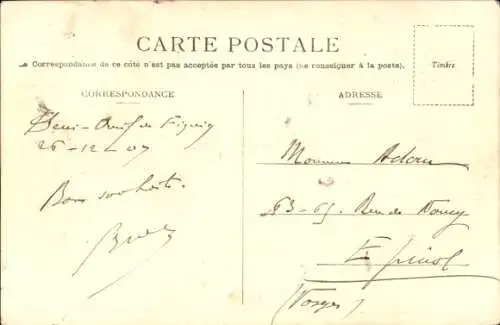 CARTE POSTALE
Correspondance de ce côté n'est pas acceptée par tous les pays (se consigner à la poste).
Timbre
CORRESPONDANCE
Beni-Ounif de Figuig
26-12-07
Bons souhaits.
ADRESSE
Monsieur Adam
63-65. Rue de Nancy
Epinal
(Vosges)